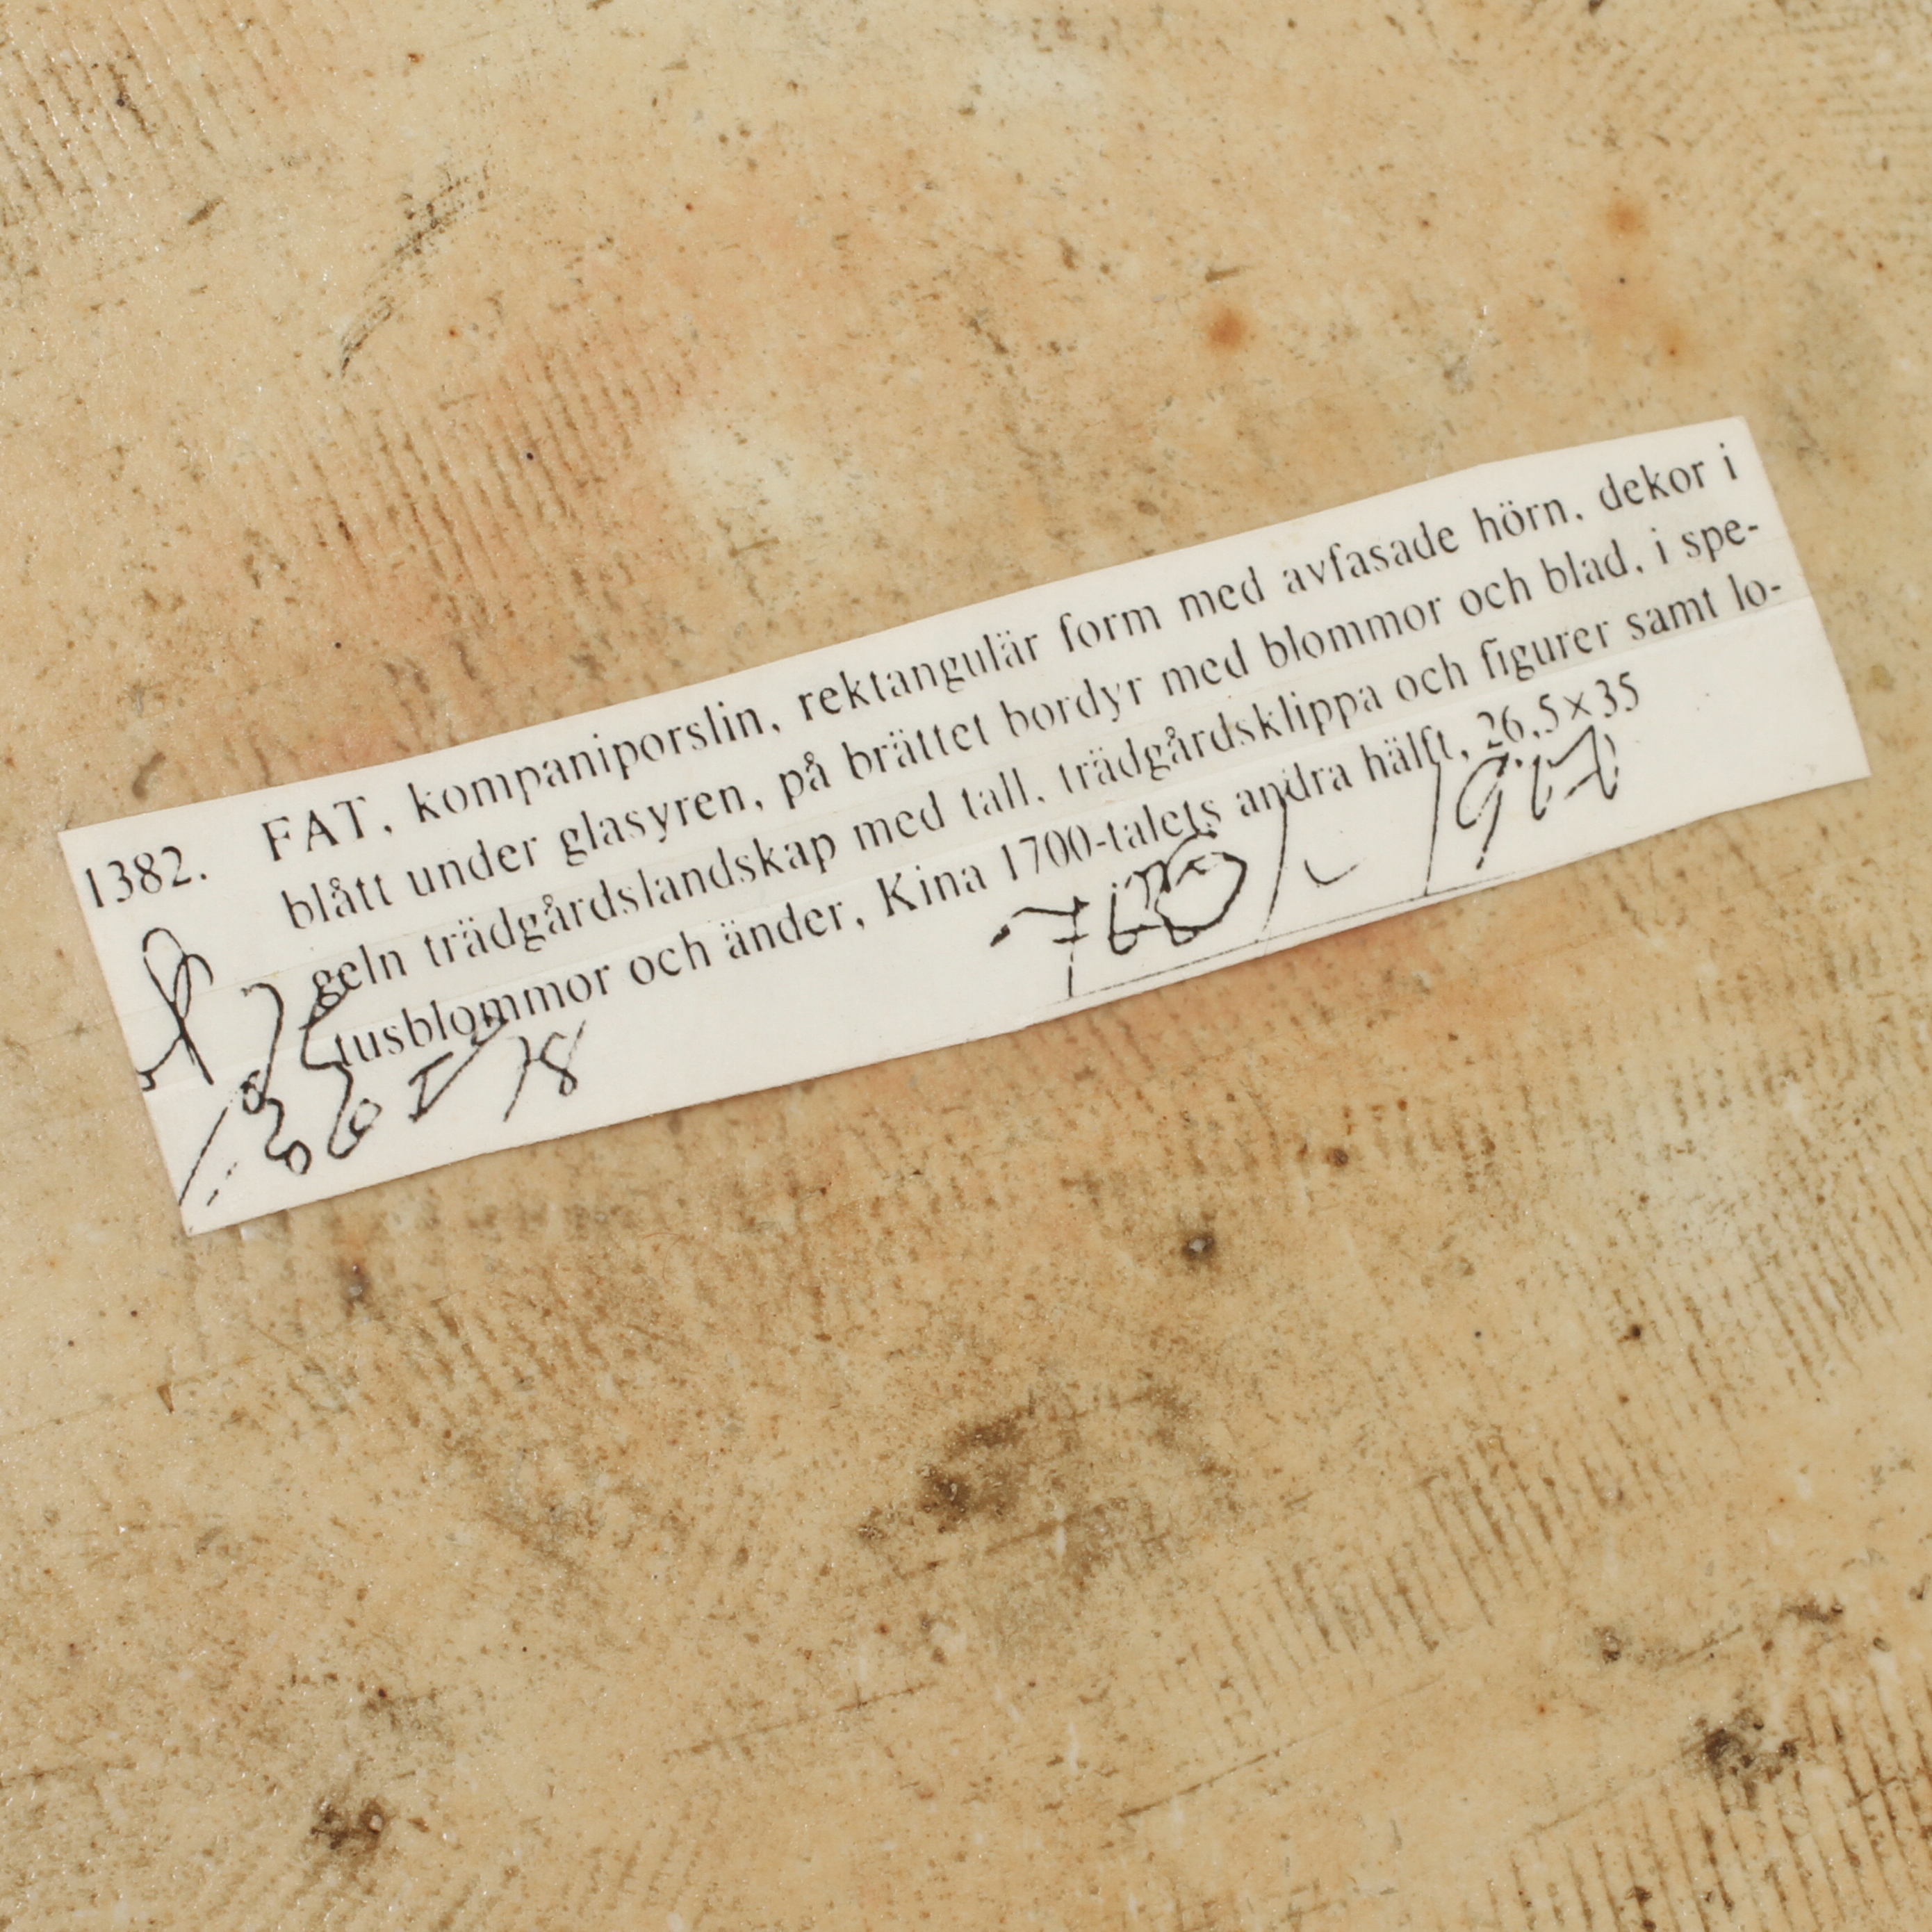 1382. FAT, kompaniporslin, rektangulär form med avfasade hörn, dekor i
blått under glasyren, på brättet bordyr med blommor och blad, i spe-
geln trädgårdslandskap med tall, trädgårdsklippa och figurer samt lo-
tusblommor och änder, Kina 1700-talets andra hälft, 26,5×35